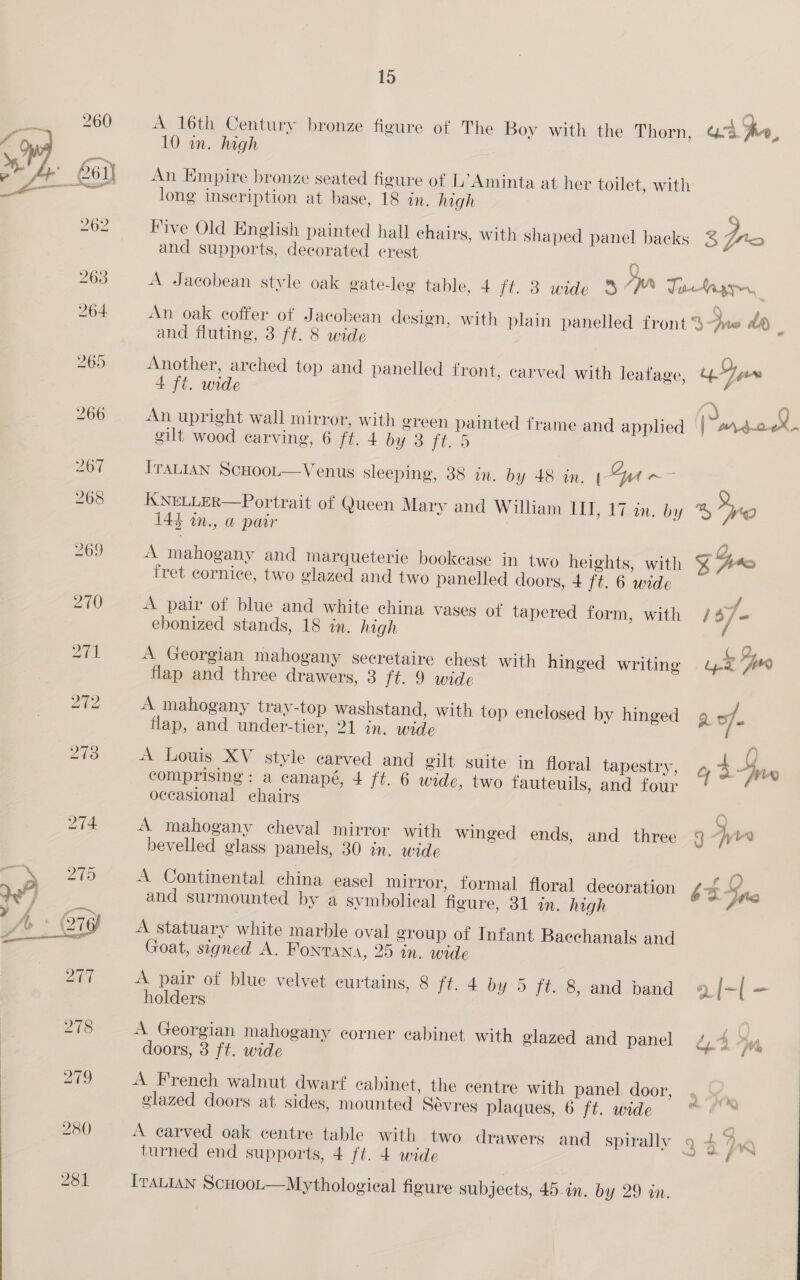 15
260 A 16th Century bronze figure of The Boy with the Thorn,
10 in. high
261 An Empire bronze seated figure of L'Aminta at her toilet, with
long inscription at base, 18 in. high
262 Five Old English painted hall chairs, with shaped panel backs
and supports, decorated crest
263 A Jacobean style oak gate-leg table, 4 ft. 3 wide
264 An oak coffer of Jacobean design, with plain panelled front
and fluting, 3 ft. 8 wide
265 Another, arched top and panelled front, carved with leafage,
4 ft. wide
266 An upright wall mirror, with green painted frame and applied
gilt wood carving, 6 ft. 4 by 3 ft. 5
267 ITALIAN SCHOOL—Venus sleeping, 38 in. by 48 in.
268 KNELLER—Portrait of Queen Mary and William III, 17 in. by
14½ in., a pair
269 A mahogany and marqueterie bookcase in two heights, with
fret cornice, two glazed and two panelled doors, 4 ft. 6 wide
270 A pair of blue and white china vases of tapered form, with
ebonized stands, 18 in. high
271 A Georgian mahogany secretaire chest with hinged writing
flap and three drawers, 3 ft. 9 wide
272 A mahogany tray-top washstand, with top enclosed by hinged
flap, and under-tier, 21 in. wide
273 A Louis XV style carved and gilt suite in floral tapestry,
comprising: a canapé, 4 ft. 6 wide, two fauteuils, and four
occasional chairs
274 A mahogany cheval mirror with winged ends, and three
bevelled glass panels, 30 in. wide
275 A Continental china easel mirror, formal floral decoration
and surmounted by a symbolical figure, 31 in. high
276 A statuary white marble oval group of Infant Bacchanals and
Goat, signed A. FONTANA, 25 in. wide
277 A pair of blue velvet curtains, 8 ft. 4 by 5 ft. 8, and band
holders
278 A Georgian mahogany corner cabinet with glazed and panel
doors, 3 ft. wide
279 A French walnut dwarf cabinet, the centre with panel door,
glazed doors at sides, mounted Sévres plaques, 6 ft. wide
280 A carved oak centre table with two drawers and spirally
turned end supports, 4 ft. 4 wide
281 ITALIAN SCHOOL—Mythological figure subjects, 45 in. by 29 in.